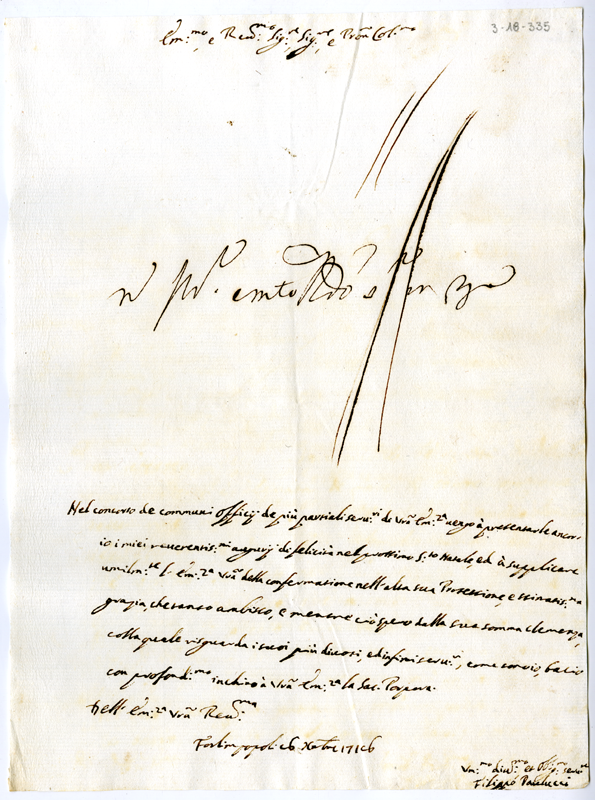 3-18-335
Em:mo, e Reu:mo Sig:r Sig:r, e Pron Col:mo
Nel concorso de communi officij de più partiali seru:ri di Vrã Em:za uengo à presentarle ancor-
io i miei reuerentis:mi augurij di felicità nel prossimo S:to Natale, ed à supplicare
umilm:te l' Em:za Vrã della confermatione nell'alta sua Protessione, e stimatis:ma
grazia, che tanto ambisco, e mentre ciò spero dalla sua somma clemenza,
colla quale risguarda i suoi più diuoti, ed infimi seru:ri, come son io, bacio
con profond:mo inchino à Vrã Em:za la Sac. Porpora.
Dell' Em:za Vrã Reu:ma
Forlimpopoli 6 Xbre 1716
Vm:mo diu:mo et Obl:mo seru:re
Filippo Paulucci